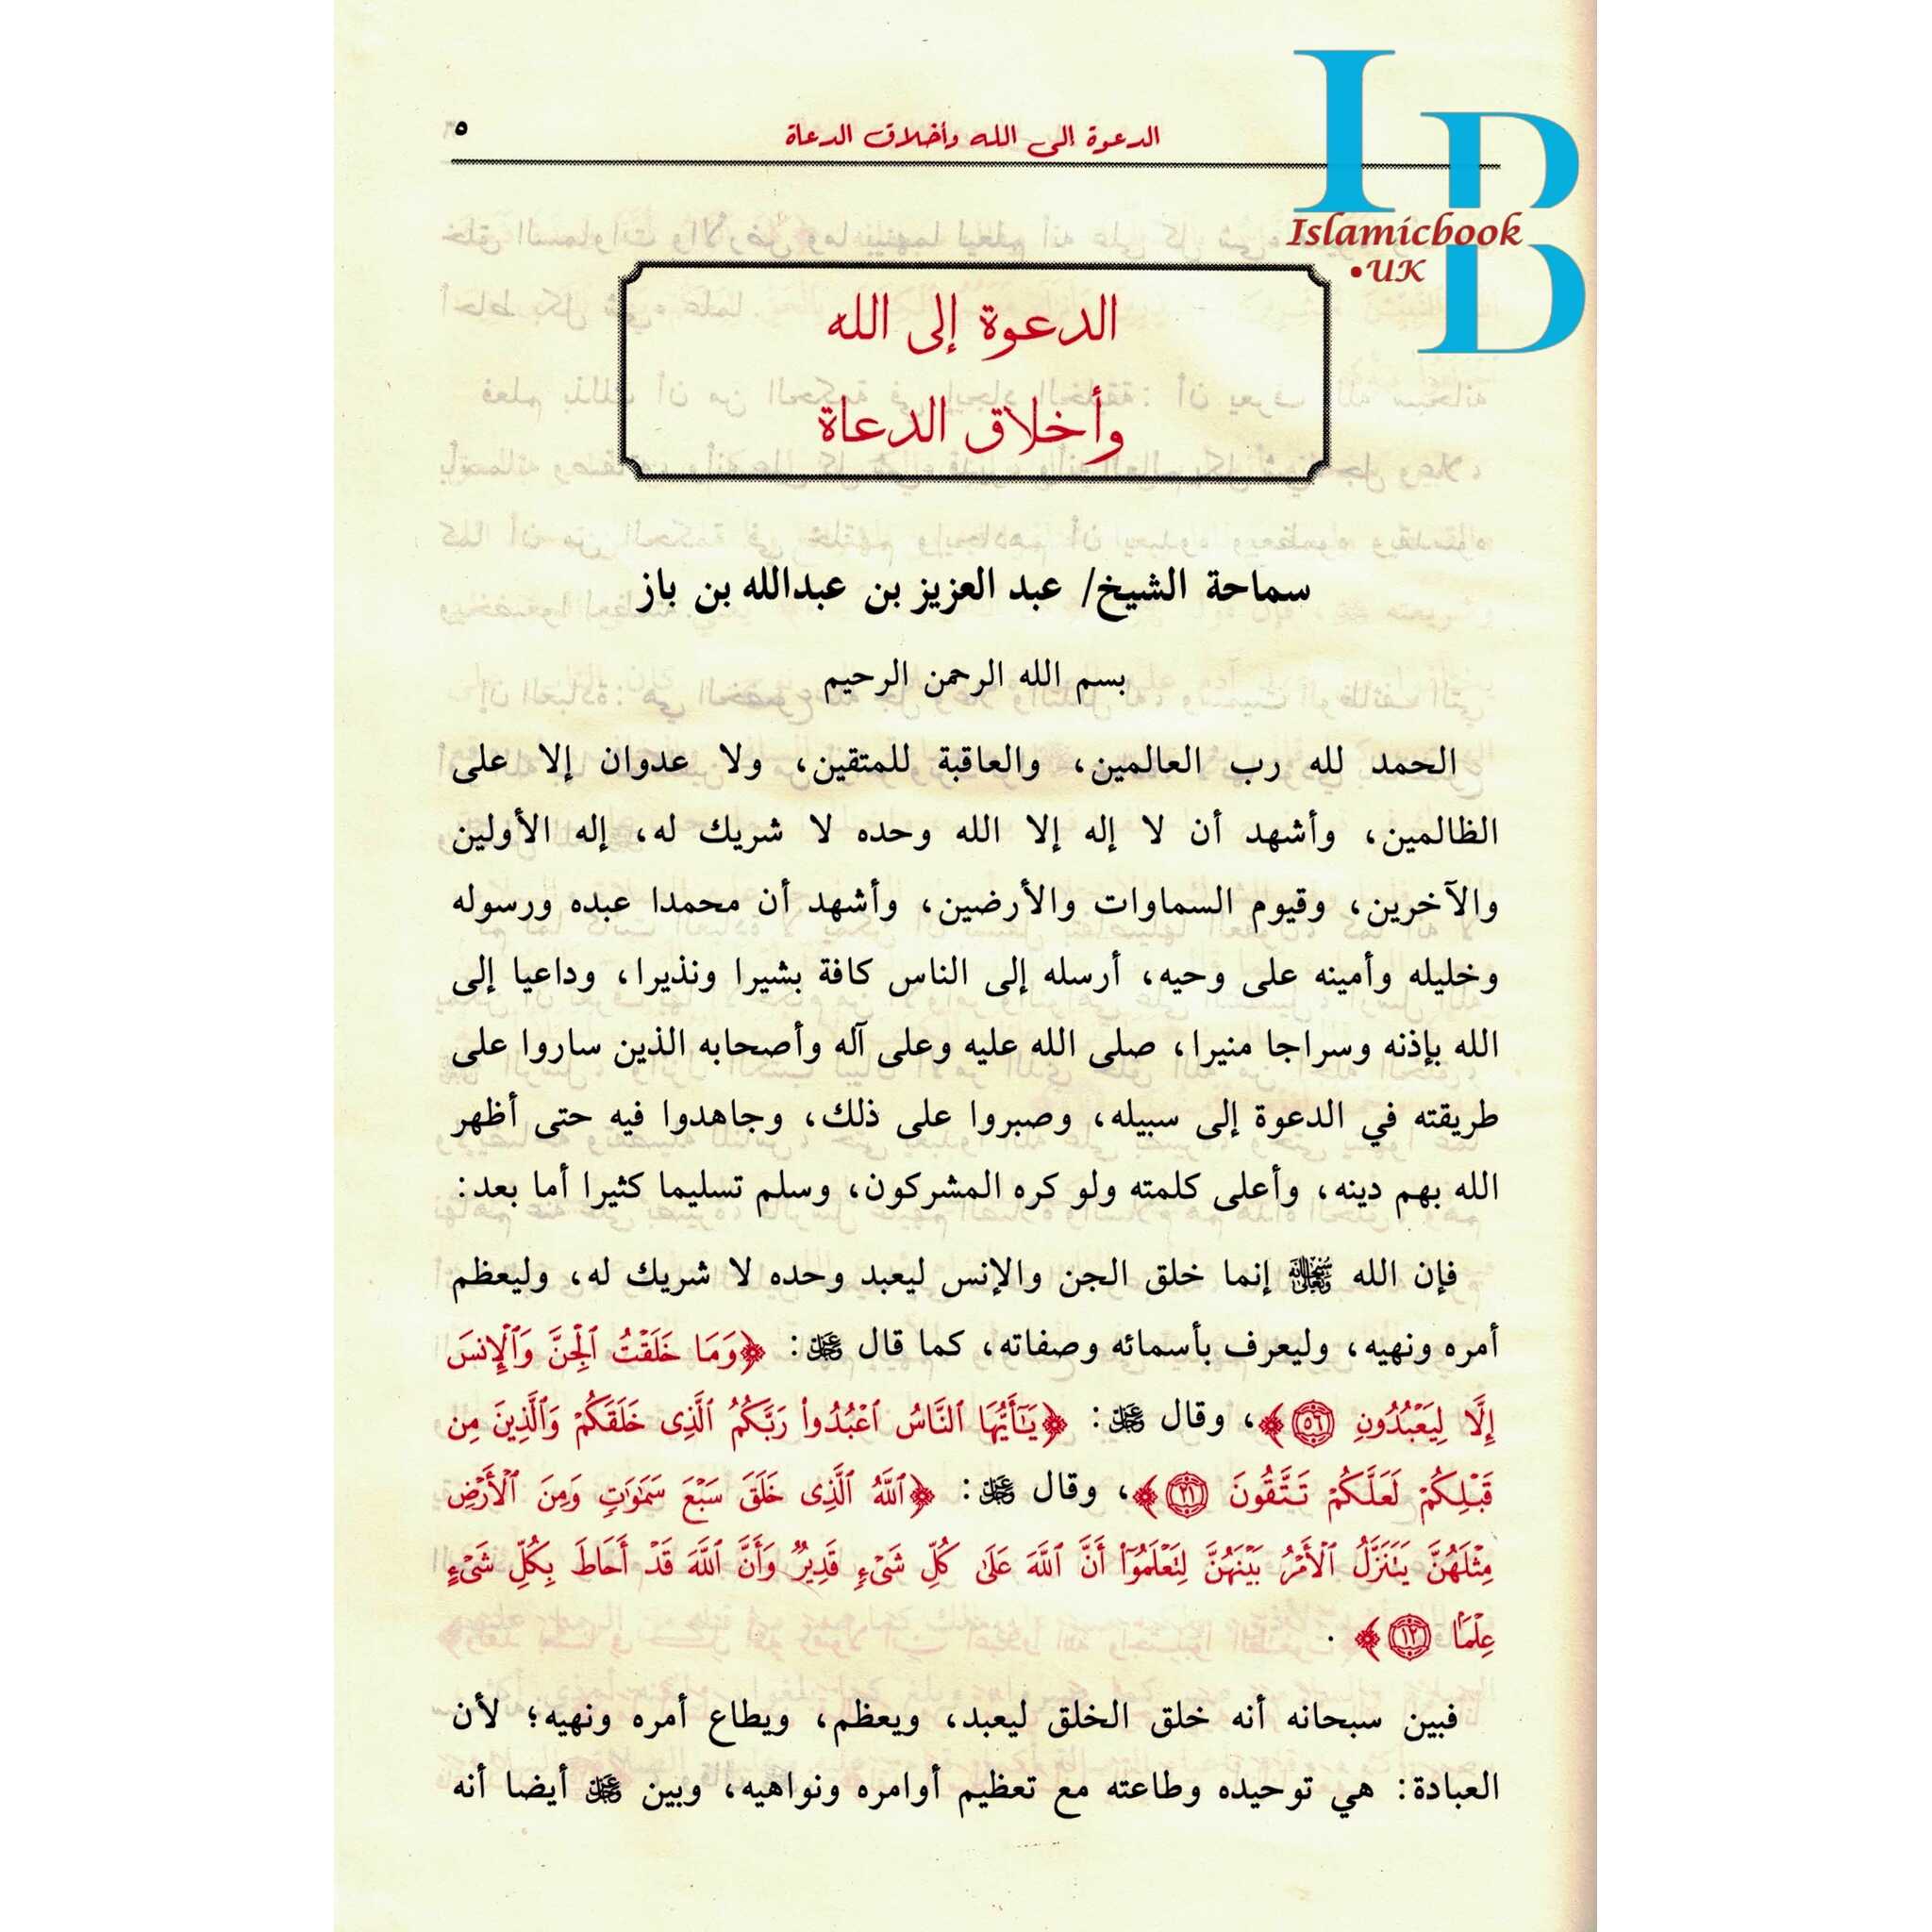 الدعوة إلى الله وأخلاق الدعاة ٥
IBD
Islamicbook
•UK
الدعوة إلى الله
وأخلاق الدعاة
سماحة الشيخ/ عبد العزيز بن عبدالله بن باز
بسم الله الرحمن الرحيم
الحمد لله رب العالمين، والعاقبة للمتقين، ولا عدوان إلا على
الظالمين، وأشهد أن لا إله إلا الله وحده لا شريك له، إله الأولين
والآخرين، وقيوم السماوات والأرضين، وأشهد أن محمدا عبده ورسوله
وخليله وأمينه على وحيه، أرسله إلى الناس كافة بشيرا ونذيرا، وداعيا إلى
الله بإذنه وسراجا منيرا، صلى الله عليه وعلى آله وأصحابه الذين ساروا على
طريقته في الدعوة إلى سبيله، وصبروا على ذلك، وجاهدوا فيه حتى أظهر
الله بهم دينه، وأعلى كلمته ولو كره المشركون، وسلم تسليما كثيرا أما بعد:
فإن الله سبحانه وتعالى إنما خلق الجن والإنس ليعبد وحده لا شريك له، وليعظم
أمره ونهيه، وليعرف بأسمائه وصفاته، كما قال عز وجل: ﴿وَمَا خَلَقْتُ ٱلْجِنَّ وَٱلْإِنسَ
إِلَّا لِيَعْبُدُونِ ٥٦﴾، وقال عز وجل: ﴿يَٰٓأَيُّهَا ٱلنَّاسُ ٱعْبُدُوا۟ رَبَّكُمُ ٱلَّذِى خَلَقَكُمْ وَٱلَّذِينَ مِن
قَبْلِكُمْ لَعَلَّكُمْ تَتَّقُونَ ٢١﴾، وقال عز وجل: ﴿ٱللَّهُ ٱلَّذِى خَلَقَ سَبْعَ سَمَٰوَٰتٍ وَمِنَ ٱلْأَرْضِ
مِثْلَهُنَّ يَتَنَزَّلُ ٱلْأَمْرُ بَيْنَهُنَّ لِتَعْلَمُوٓا۟ أَنَّ ٱللَّهَ عَلَىٰ كُلِّ شَىْءٍ قَدِيرٌ وَأَنَّ ٱللَّهَ قَدْ أَحَاطَ بِكُلِّ شَىْءٍ
عِلْمًۢا ١٢﴾.
فبين سبحانه أنه خلق الخلق ليعبد، ويعظم، ويطاع أمره ونهيه؛ لأن
العبادة: هي توحيده وطاعته مع تعظيم أوامره ونواهيه، وبين عز وجل أيضا أنه